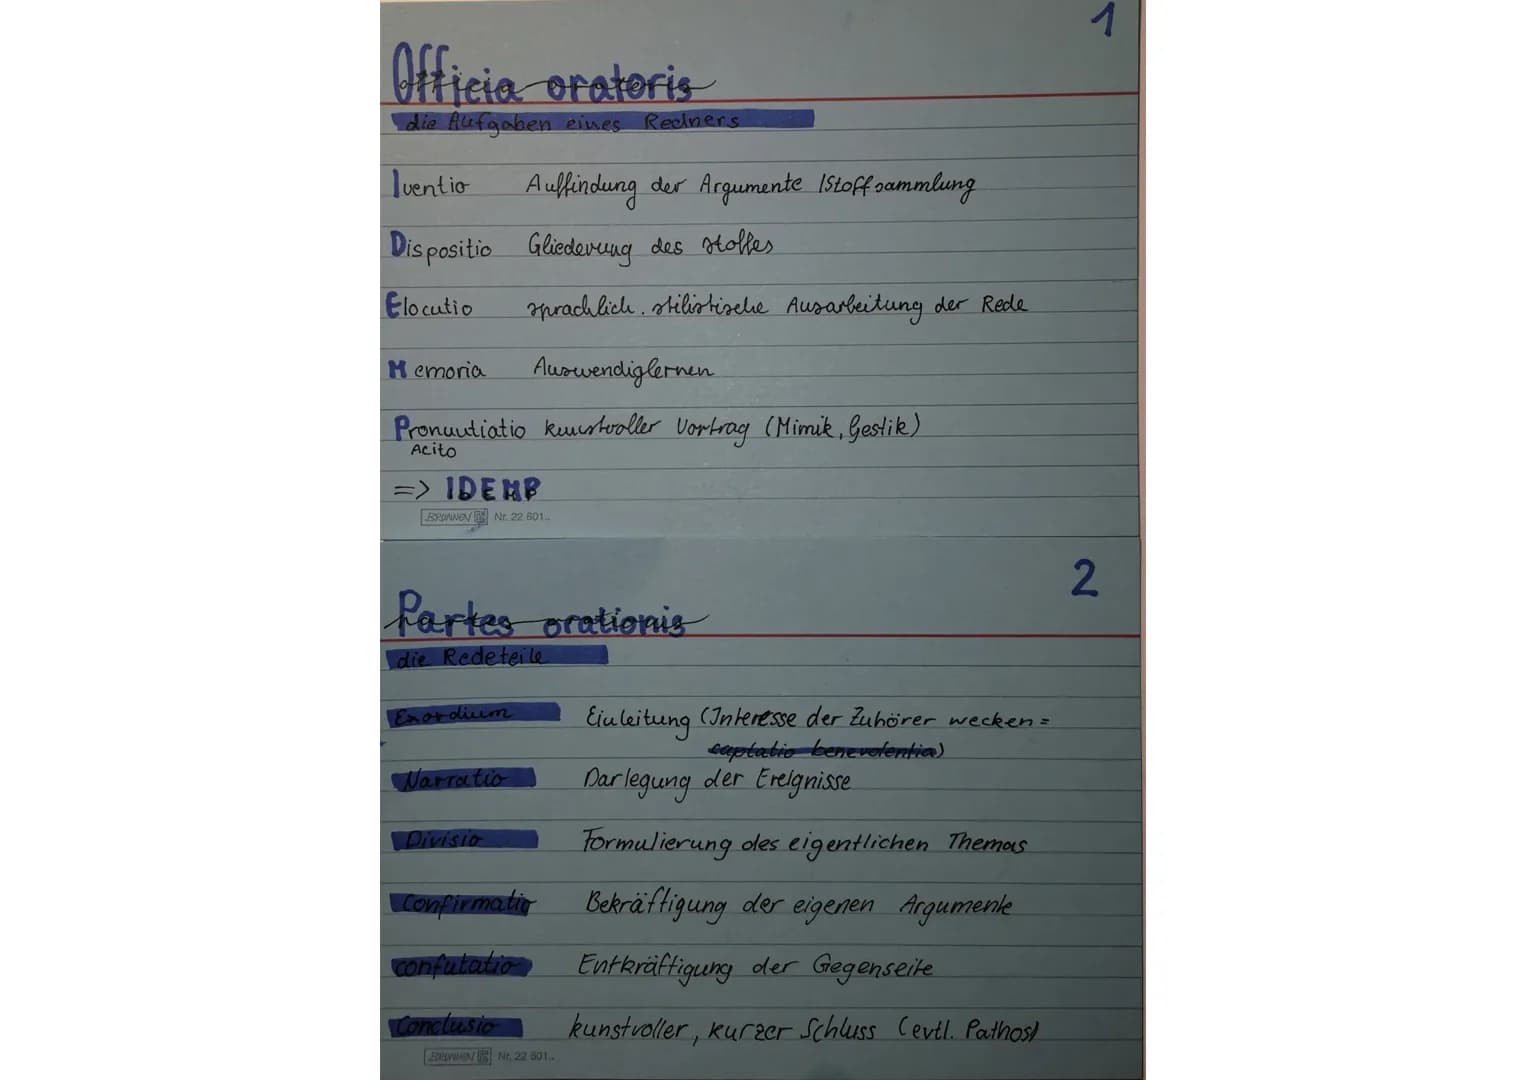 1
Officia oratoris
die Aufgaben eines Redners
Iventio Auffindung der Argumente /Stoffsammlung
Dispositio Gliederung des stoffes
Elocutio sprachlich. stilistische Ausarbeitung der Rede
Memoria Auswendiglernen
Pronuutiatio kunstvoller Vortrag (Mimik, Gestik)
Acito
=> IDEMP
BRUNNEN Nr. 22 601..
2
Partes orationis
die Redeteile
Exordium Einleitung (Interesse der Zuhörer wecken =
captatio benevolentia)
Narratio Darlegung der Ereignisse
Divisio Formulierung des eigentlichen Themas
Confirmatio Bekräftigung der eigenen Argumente
confutatio Entkräftigung der Gegenseite
Conclusio kunstvoller, kurzer Schluss (evtl. Pathos)
BRUNNEN Nr. 22 601..